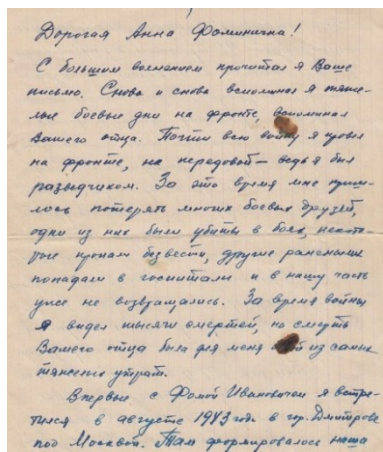 Дорогая Анна Фоминична!
С большим волнением прочитал я Ваше
письмо. Снова и снова вспоминал я тяже-
лые боевые дни на фронте, вспоминал
Вашего отца. Почти всю войну я провел
на фронте, на передовой — ведь я был
разведчиком. За это время мне приш-
лось потерять многих боевых друзей,
одни из них были убиты в боях, некото-
рые пропали безвести, другие ранеными
попадали в госпитали и в нашу часть
уже не возвращались. За время войны
я видел тысячи смертей, но смерть
Вашего отца была для меня из самых
тяжелых утрат.
Впервые с Фомой Ивановичем я встре-
тился в августе 1943 года в гор. Дмитрове
под Москвой. Там формировалась наша